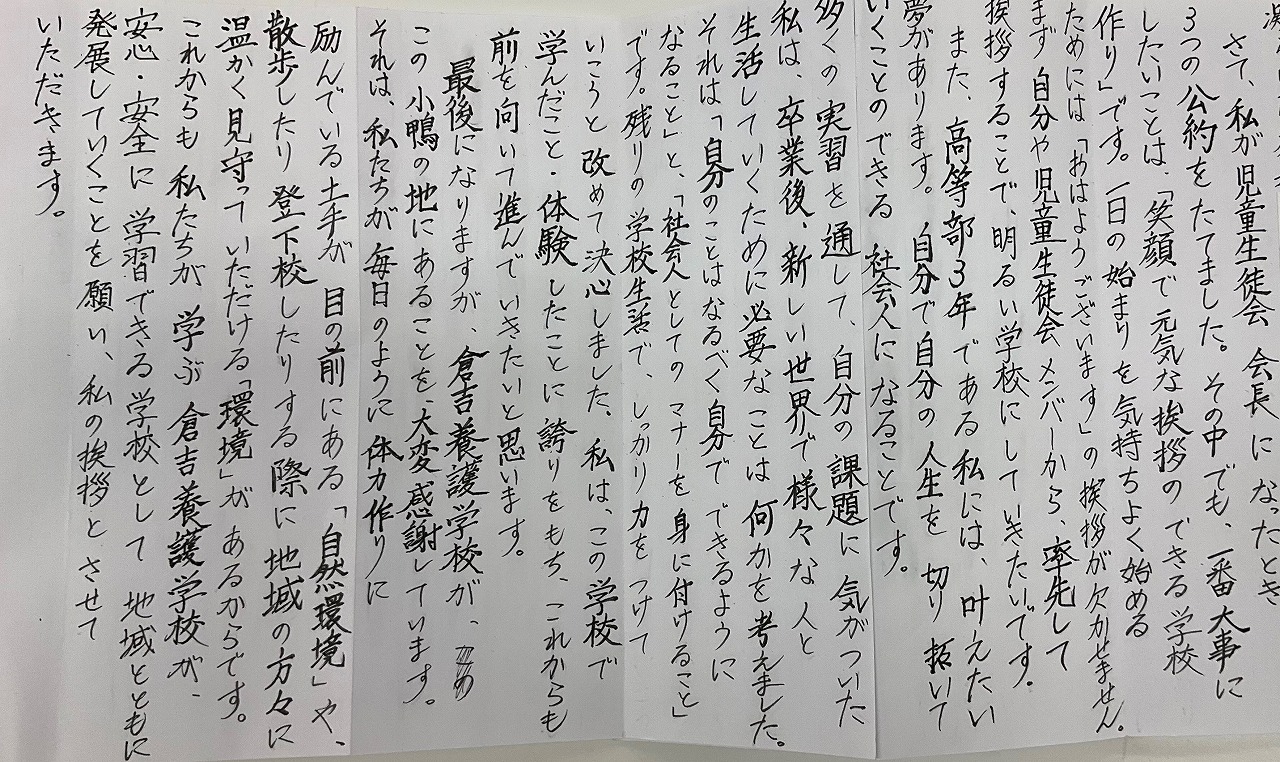 さて、私が児童生徒会 会長に なったとき
3つの公約をたてました。その中でも、一番大事に
したいことは、「笑顔で元気な挨拶のできる学校
作り」です。一日の始まりを気持ちよく始める
ためには「おはようございます」の挨拶が欠かせません。
まず 自分や児童生徒会メンバーから、率先して
挨拶することで、明るい学校にしていきたいです。
また、高等部3年である私には、叶えたい
夢があります。自分で自分の人生を 切り拓いて
いくことのできる 社会人に なることです。
多くの実習を通して、自分の課題に 気がついた
私は、卒業後、新しい世界で様々な人と
生活していくために必要なことは 何かを考えました。
それは「自分のことはなるべく自分で できるように
なること」と、「社会人としてのマナーを身に付けること」
です。残りの学校生活で、しっかり力をつけて
いこうと 改めて決心しました。私は、この学校で
学んだこと・体験したことに誇りをもち、これからも
前を向いて進んでいきたいと思います。
最後になりますが、倉吉養護学校が、
この小鴨の地にあることを、大変感謝しています。
それは、私たちが 毎日のように 体力作りに
励んでいる土手が 目の前にある「自然環境」や、
散歩したり 登下校したりする際に 地域の方々に
温かく見守っていただける「環境」が あるからです。
これからも 私たちが 学ぶ 倉吉養護学校が、
安心・安全に 学習できる学校として 地域とともに
発展していくことを願い、私の挨拶と させて
いただきます。